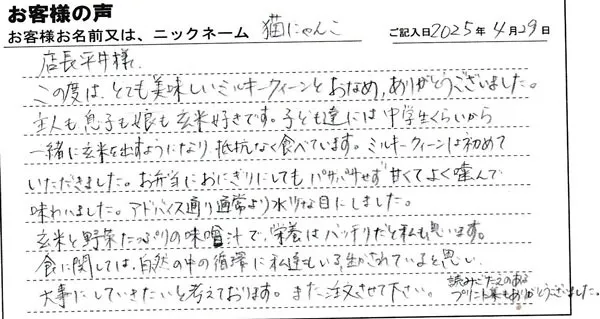 お客様の声
お客様お名前又は、ニックネーム 猫にゃんこ ご記入日2025年4月29日
店長平井様
この度は、とても美味しいミルキークィーンとおなめ、ありがとうございました。
主人も息子も娘も玄米好きです。子ども達には中学生くらいから
一緒に玄米を出すようになり抵抗なく食べています。ミルキークィーンは初めて
いただきました。お弁当におにぎりにしてもパサパサせず甘くてよく噛んで
味わいました。アドバイス通り通常より水少な目にしました。
玄米と野菜たっぷりの味噌汁で、栄養はバッチリだと私も思います。
食に関しては、自然の中の循環に私達もいる,生かされていると思い
大事にしていきたいと考えております。また注文させて下さい。
読みごたえのある
プリント集もありがとうございました。